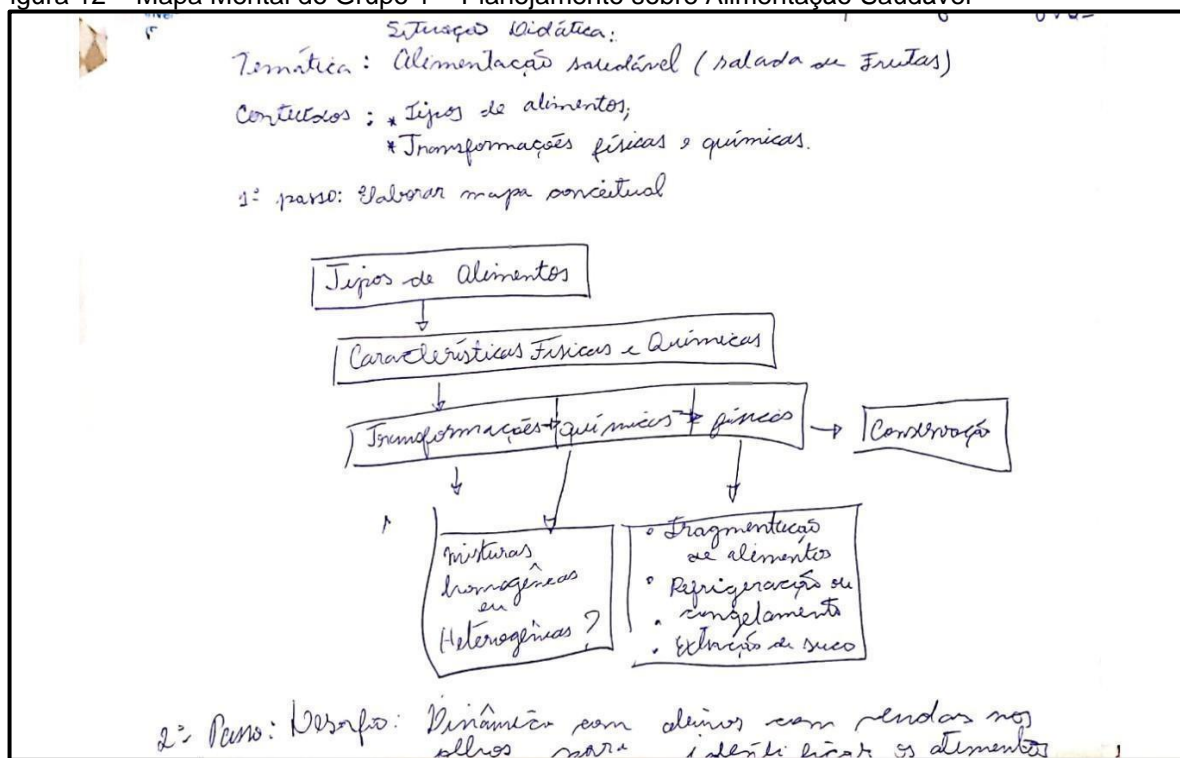 igura 12 – Mapa Mental do Grupo 1 – Planejamento sobre Alimentação Saudável
Situação Didática:
Temática: Alimentação saudável (salada de Frutas)
Conteúdos: * Tipos de alimentos;
* Transformações físicas e químicas.
1º passo: Elaborar mapa conceitual
Tipos de Alimentos
Características Físicas e Químicas
Transformações químicas físicas
Conservação
Misturas
homogêneas
ou
Heterogêneas?
• Fragmentação
de alimentos
• Refrigeração ou
• congelamento
• Extração de suco
2º Passo: Desafio: Dinâmica com alunos com vendas nos
olhos para identificar os alimentos